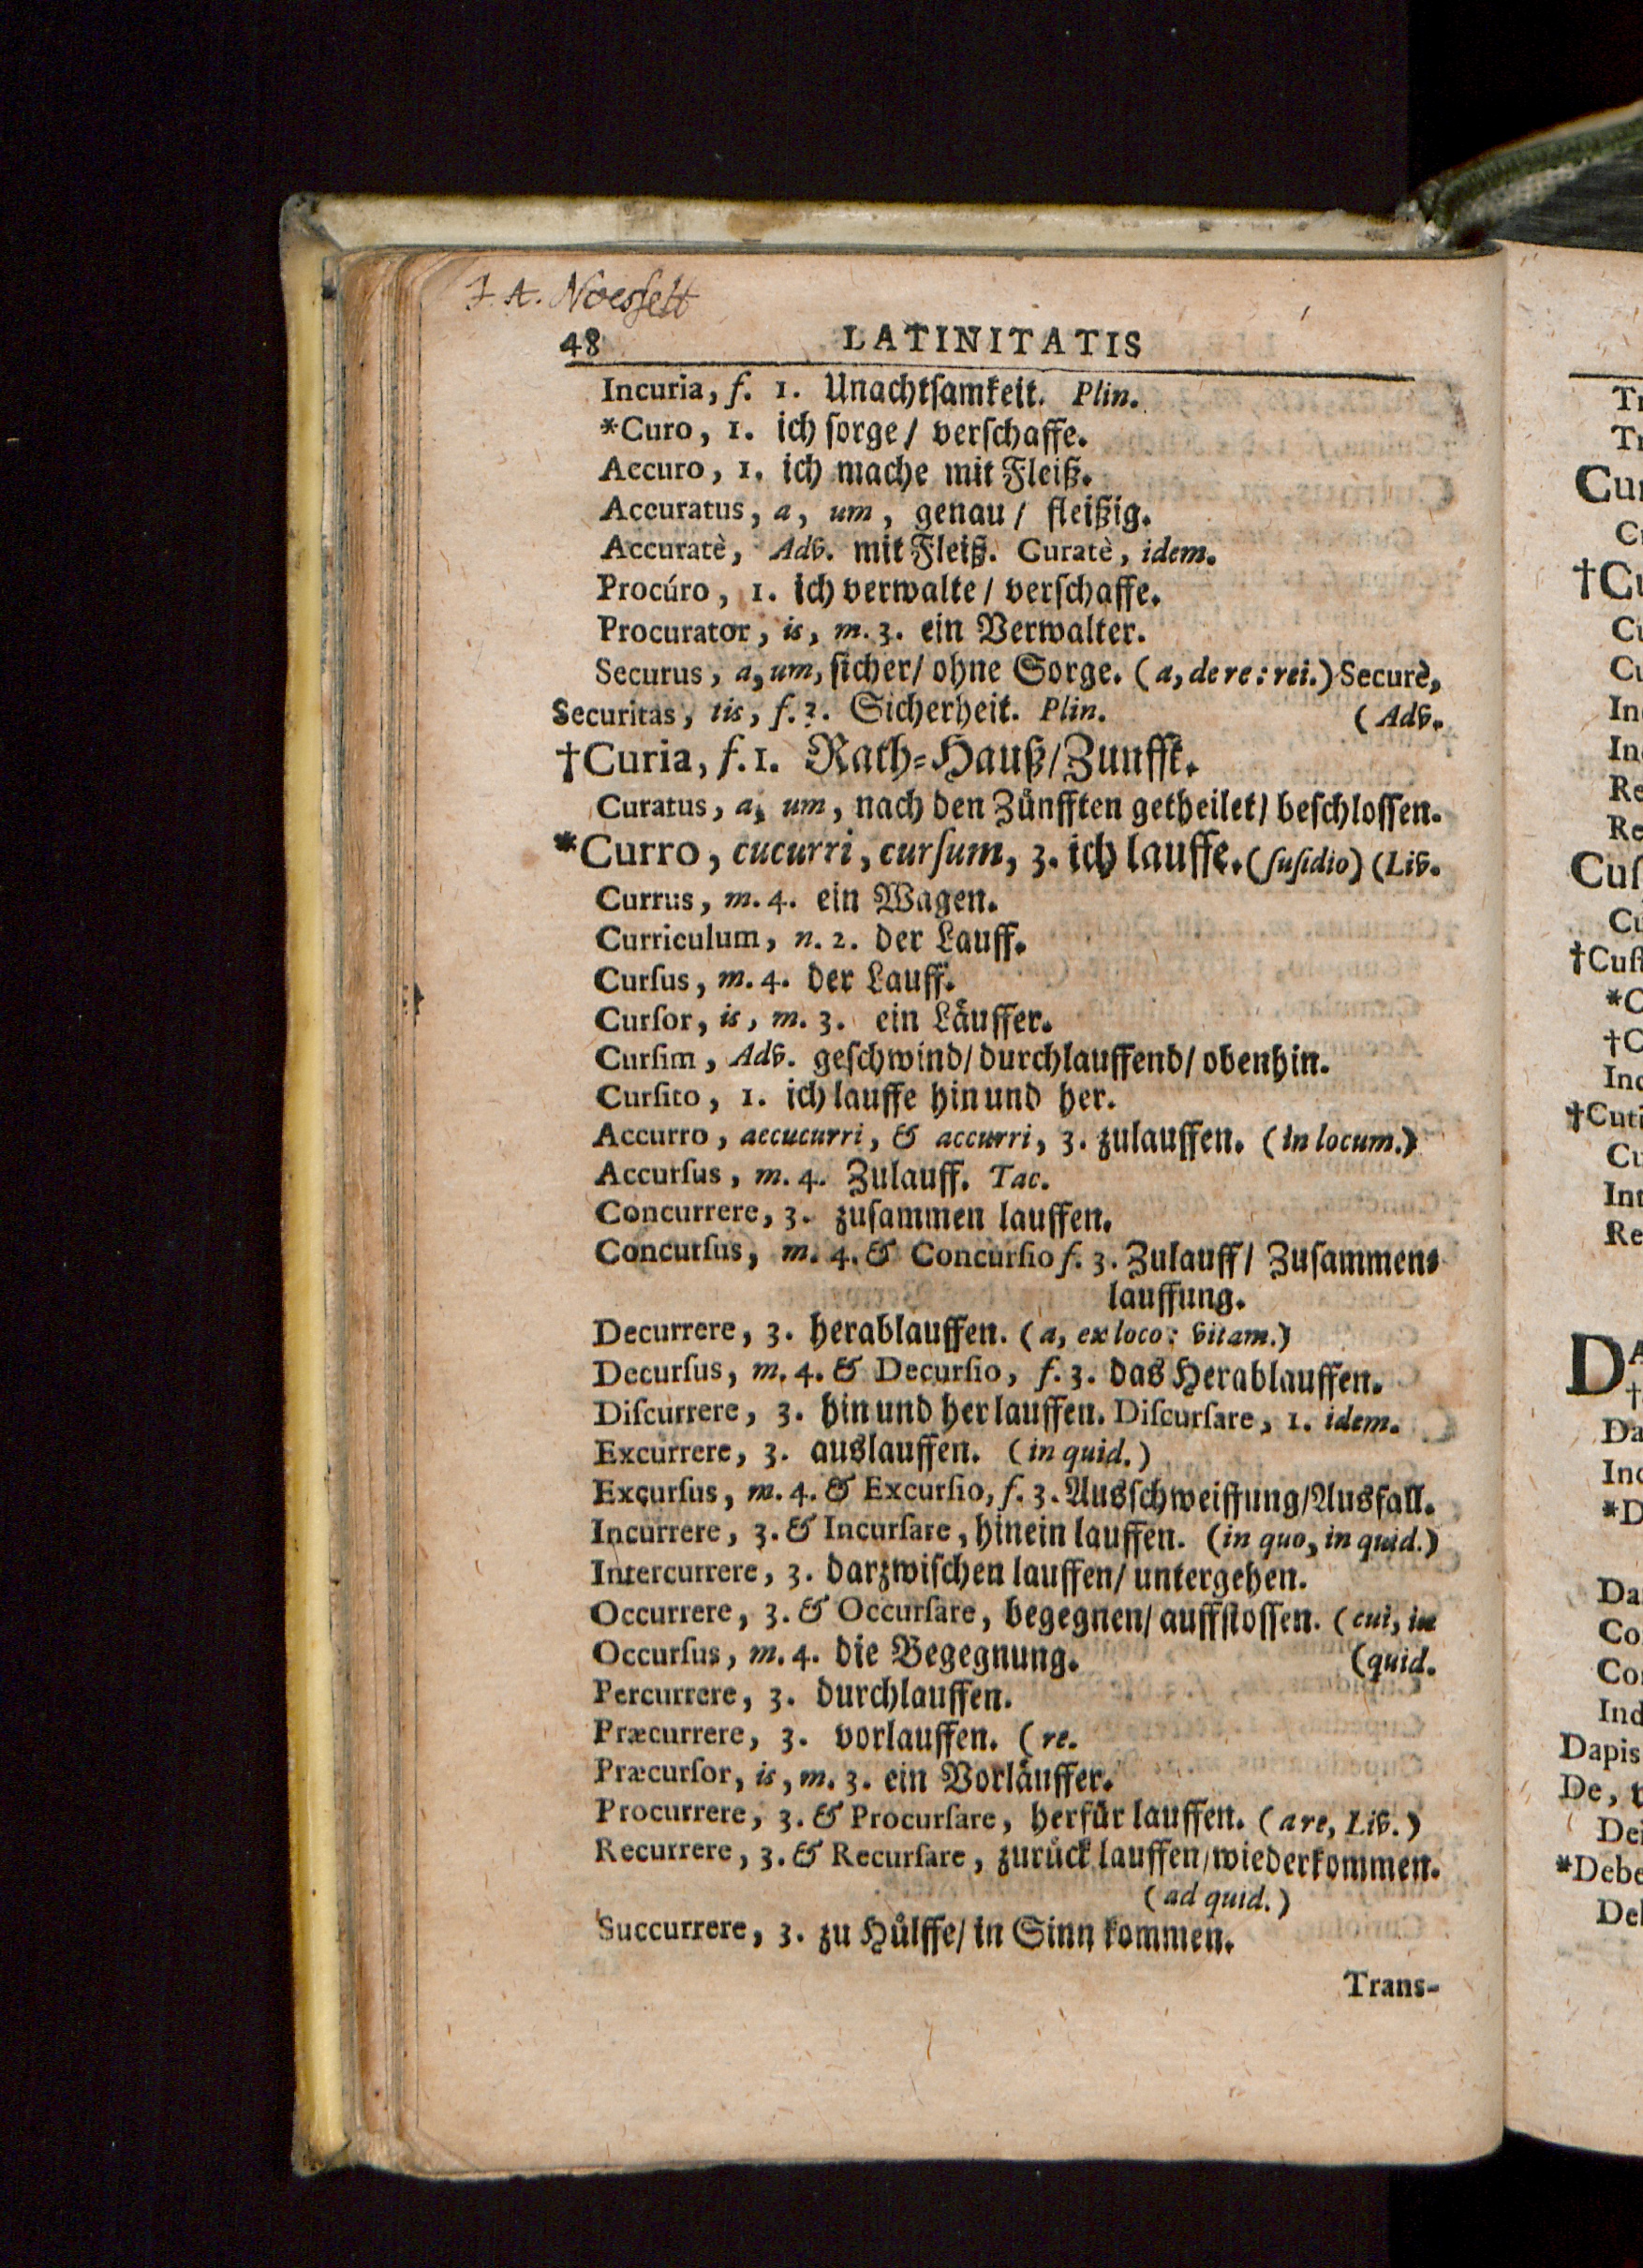 J. A. Noesselt
48 LATINITATIS
Incuria, f. 1. Unachtſamkeit. Plin.
*Curo, 1. ich ſorge/ verſchaffe.
Accuro, 1. ich mache mit Fleiß.
Accuratus, a, um, genau/ fleißig.
Accuratè, Adv. mit Fleiß. Curatè, idem.
Procúro, 1. ich verwalte/ verſchaffe.
Procurator, is, m. 3. ein Verwalter.
Securus, a, um, ſicher/ ohne Sorge. (a, de re: rei.) Securè,
Securitas, tis, f. 3. Sicherheit. Plin. (Adv.
†Curia, f. 1. Rath-Hauß/Zunfft.
Curatus, a, um, nach den Zünfften getheilet/ beſchloſſen.
*Curro, cucurri, curſum, 3. ich lauffe. (ſuſidio) (Liv.
Currus, m. 4. ein Wagen.
Curriculum, n. 2. der Lauff.
Curſus, m. 4. der Lauff.
Curſor, is, m. 3. ein Läuffer.
Curſim, Adv. geſchwind/durchlauffend/ obenhin.
Curſito, 1. ich lauffe hin und her.
Accurro, accucurri, & accurri, 3. zulauffen. (in locum.)
Accurſus, m. 4. Zulauff. Tac.
Concurrere, 3. zuſammen lauffen.
Concurſus, m. 4. & Concurſio f. 3. Zulauff/ Zuſammen-
lauffung.
Decurrere, 3. herablauffen. (a, ex loco: vitam.)
Decurſus, m. 4. & Decurſio, f. 3. das Herablauffen.
Diſcurrere, 3. hin und her lauffen. Diſcurſare, 1. idem.
Excurrere, 3. auslauffen. (in quid.)
Excurſus, m. 4. & Excurſio, f. 3. Ausſchweiffung/Ausfall.
Incurrere, 3. & Incurſare, hinein lauffen. (in quo, in quid.)
Intercurrere, 3. darzwiſchen lauffen/ untergehen.
Occurrere, 3. & Occurſare, begegnen/ auffſtoſſen. (cui, in
Occurſus, m. 4. die Begegnung. (quid.
Percurrere, 3. durchlauffen.
Præcurrere, 3. vorlauffen. (re.
Præcurſor, is, m. 3. ein Vorläuffer.
Procurrere, 3. & Procurſare, herfür lauffen. (a re, Liv.)
Recurrere, 3. & Recurſare, zurück lauffen/wiederkommen.
(ad quid.)
Succurrere, 3. zu Hülffe/ in Sinn kommen.
Trans-